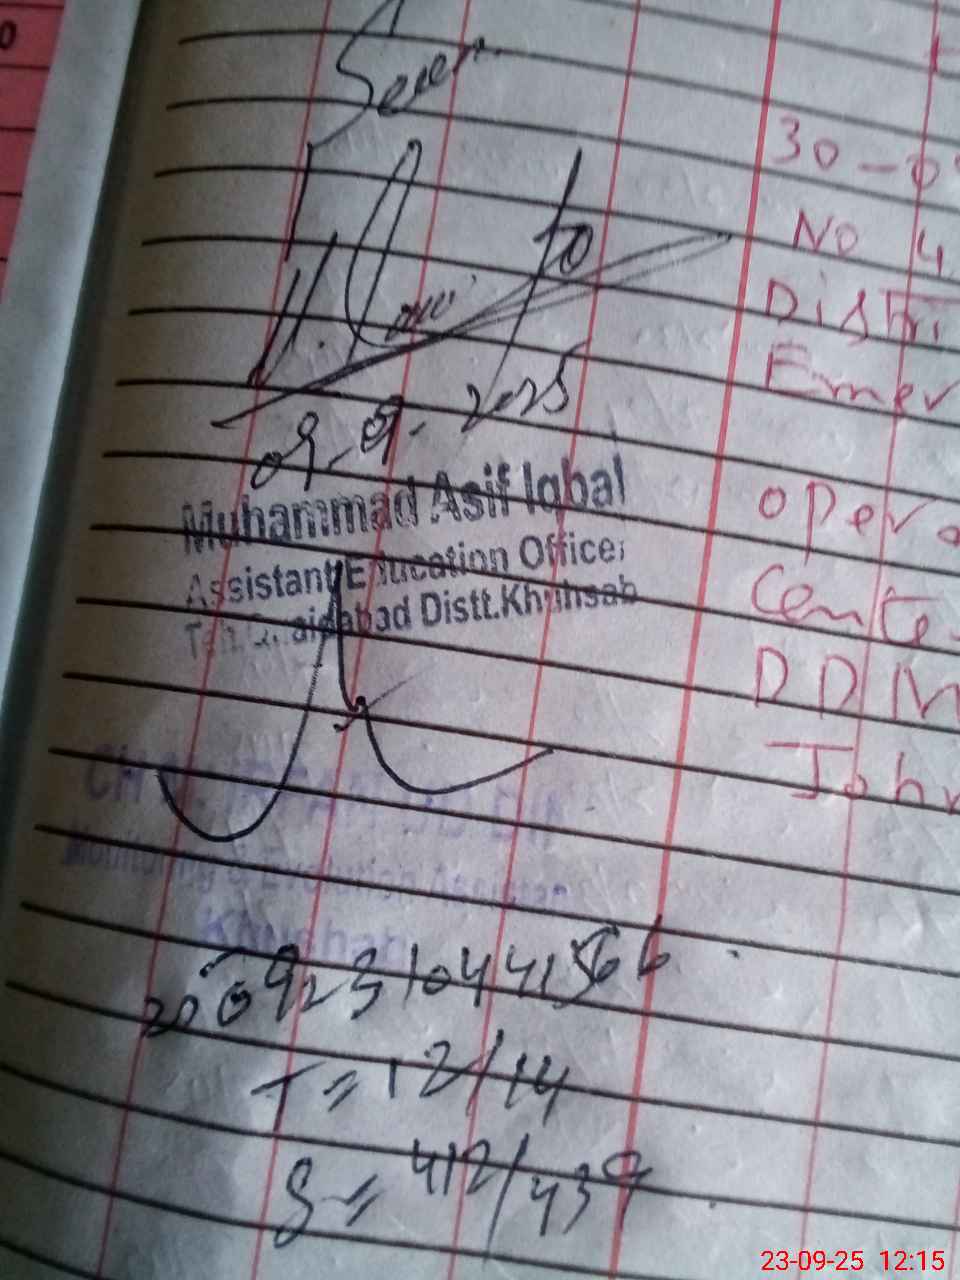 Seen
09-09-2025
Muhammad Asif Iqbal
Assistant Education Officer
Teh. Quaidabad Distt. Khuhsab
Monitoring & Evalution Assistan
Khushab
T = 12/14
S = 412/439
30-0
No 4
Distri
Emer
opera
Cente
DDM
Johr
23-09-25 12:15